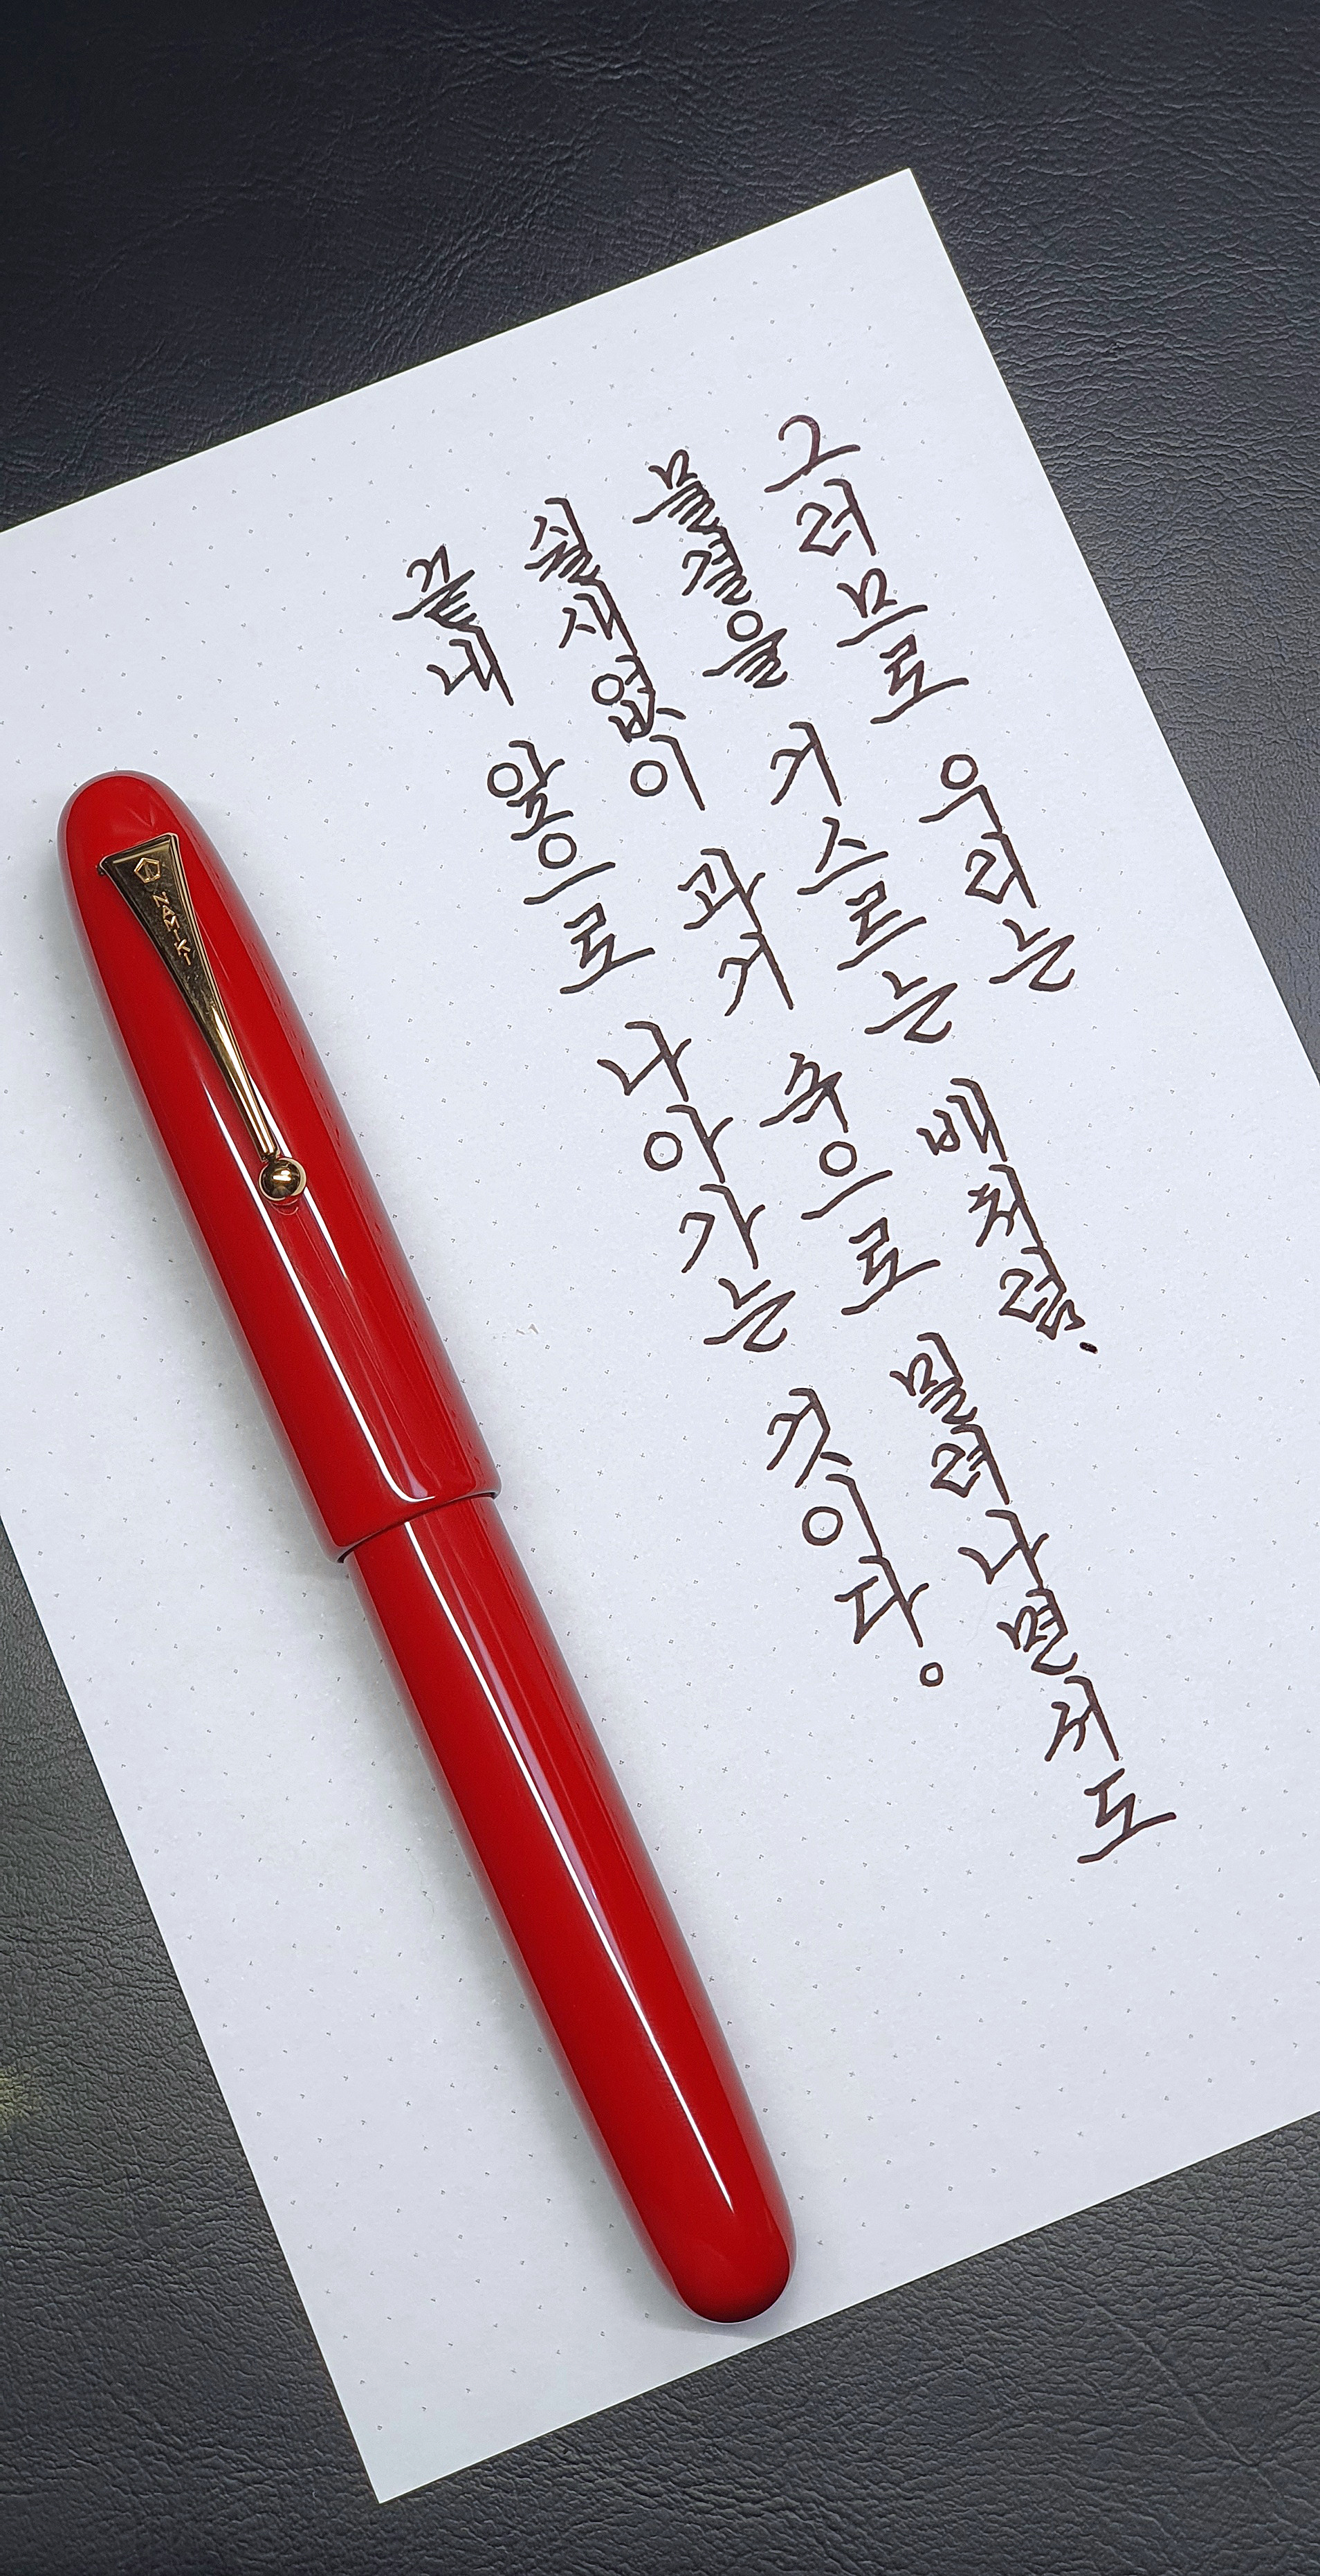 그러므로 우리는
물결을 거스르는 배처럼.
쉴새없이 과거 속으로 밀려나면서도
끝내 앞으로 나아가는 것이다.
NAMIKI